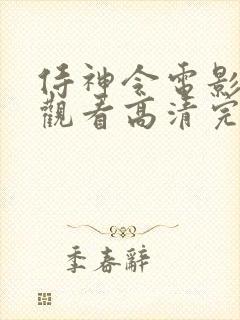 侍神令電影
觀看高清完
季春辭